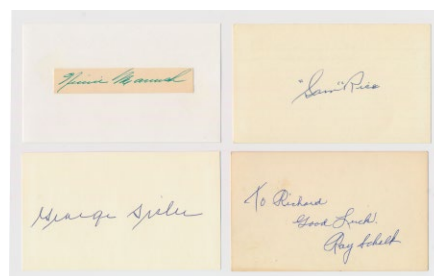 Heinie Manush
"Sam" Rice
George Sisler
To Richard
Good Luck.
Ray Schalk